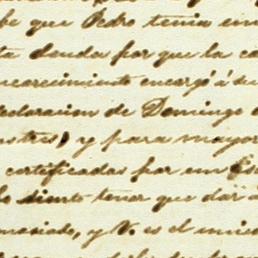 be que Pedro tenia en
ta deuda por que la co
ncarecimiento encargó á su
declaracion de Domingo
astres, y para mayor
certificadas por un Es
lo siento tener que dar á
masiado, y V. es el unico